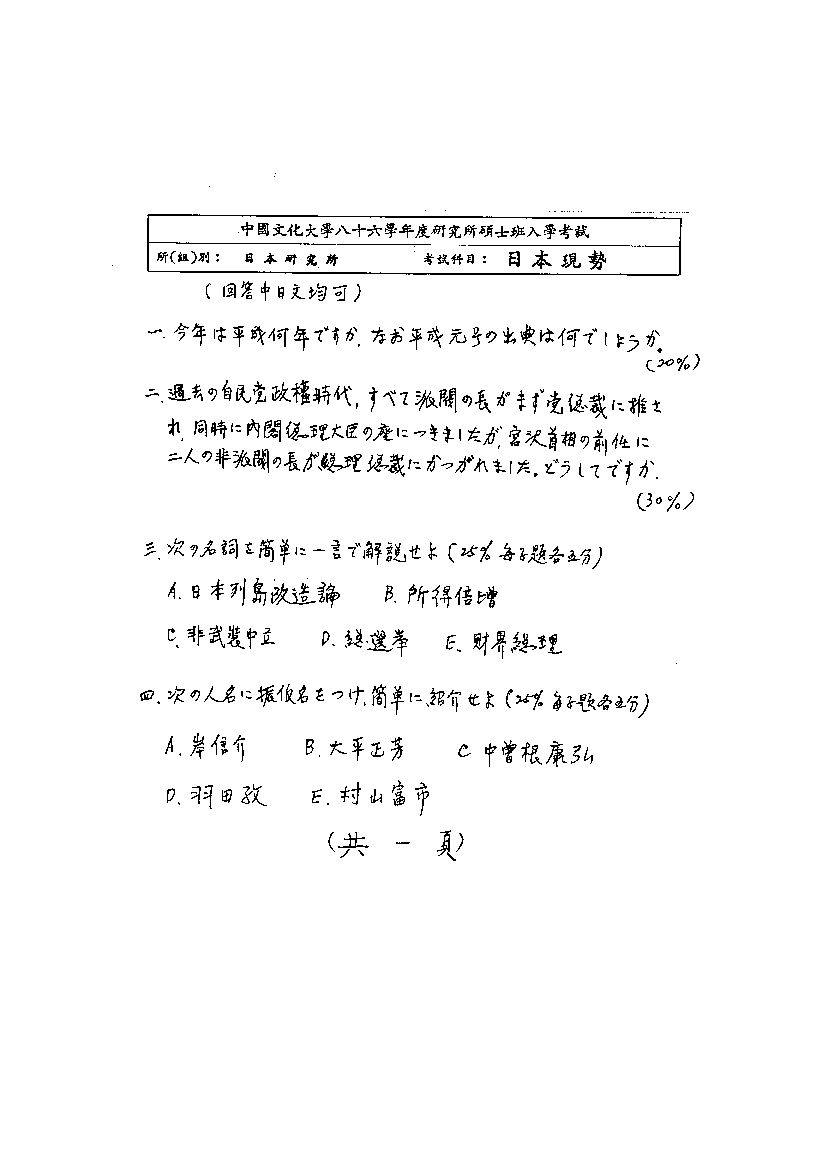 中國文化大學八十六學年度研究所碩士班入學考試
所(組)別： 日本研究所 考試科目： 日本現勢
(回答中日文均可)
一. 今年は平成何年ですか, なお平成元号の出典は何でしようか. (20%)
二. 過去の自民党政權時代, すべて派閥の長がまず党総裁に推さ
れ, 同時に內閣総理大臣の座につきましたが, 宮沢首相の前任に
二人の非派閥の長が総理総裁にかつがれました。どうしてですか.
(30%)
三. 次の名詞を簡単に一言で解説せよ (25% 每子題各五分)
A. 日本列島改造論 B. 所得倍増
C. 非武裝中立 D. 総選挙 E. 財界総理
四. 次の人名に振仮名をつけ, 簡単に紹介せよ (25% 每子題各五分)
A. 岸信介 B. 大平正芳 C. 中曽根康弘
D. 羽田孜 E. 村山富市
(共一頁)